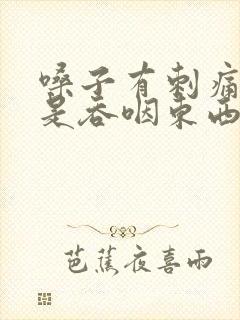 嗓子有刺痛
是吞咽东西
芭蕉夜喜雨